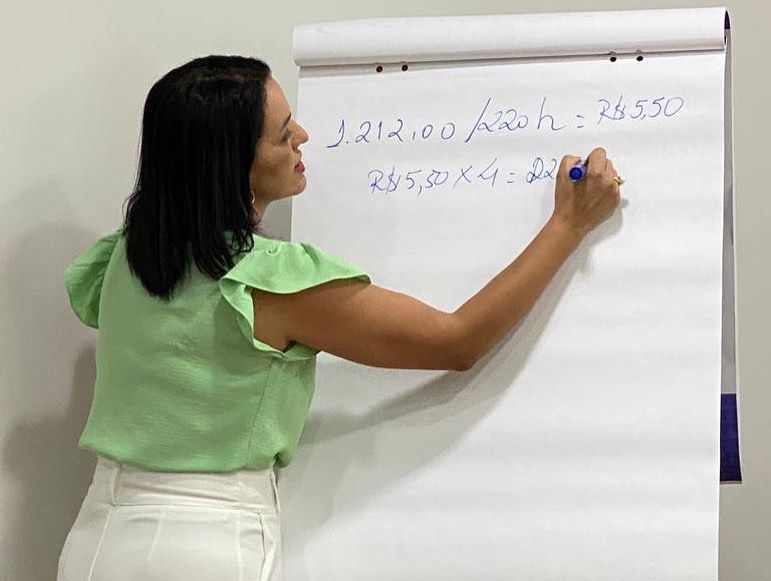 1.212,00 /220h = R$5,50
R$5,50 x 4 = 22